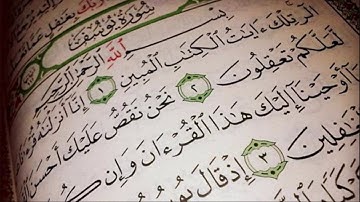 رَبُّكَ بِغَٰفِلٍ عَمَّا
سُورَةُ يُوسُفَ
بِسْمِ اللَّهِ الرَّحْمَٰنِ الرَّحِيمِ
الٓر تِلْكَ ءَايَٰتُ الْكِتَٰبِ الْمُبِينِ ١ إِنَّآ أَنزَلْنَٰهُ
لَّعَلَّكُمْ تَعْقِلُونَ ٢ نَحْنُ نَقُصُّ عَلَيْكَ أَحْسَنَ
أَوْحَيْنَآ إِلَيْكَ هَٰذَا الْقُرْءَانَ وَإِن
ٱلْغَٰفِلِينَ ٣ إِذْ قَالَ